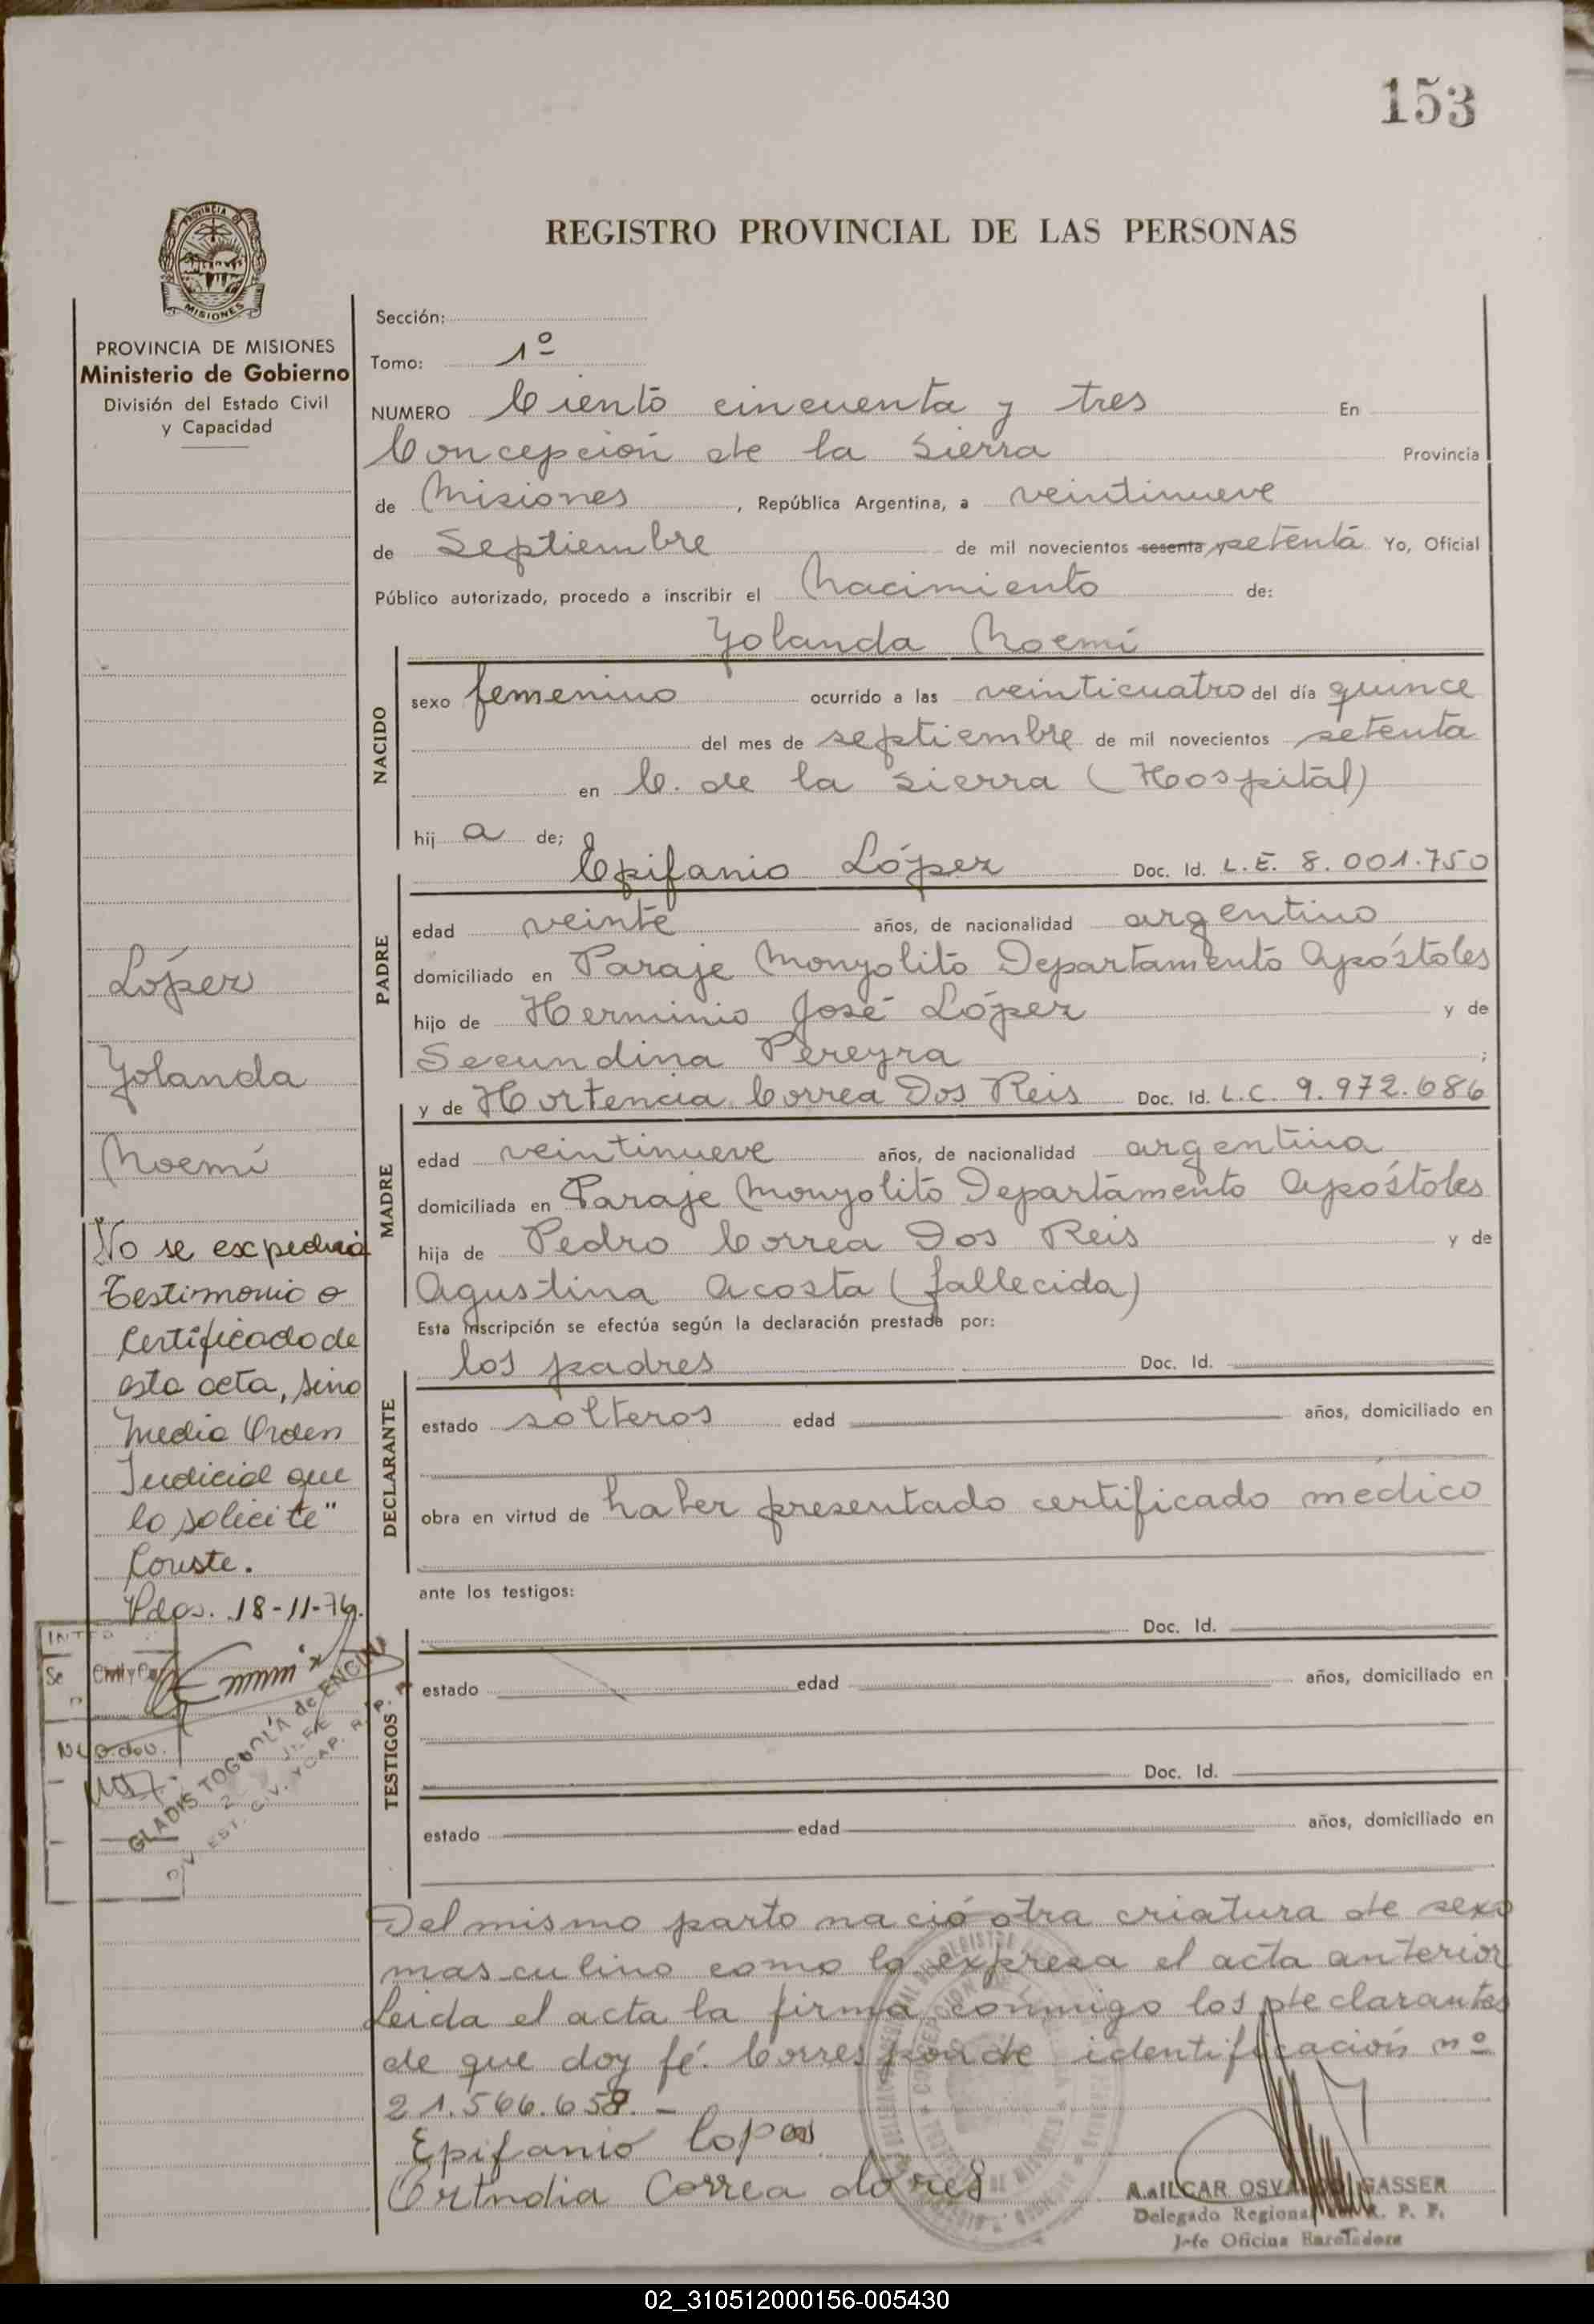 153
PROVINCIA DE
MISIONES
REGISTRO PROVINCIAL DE LAS PERSONAS
PROVINCIA DE MISIONES
Ministerio de Gobierno
División del Estado Civil
y Capacidad
Sección:
Tomo: 1º
NUMERO Ciento cincuenta y tres En
Concepción de la Sierra Provincia
de Misiones, República Argentina, a veintinueve
de Septiembre de mil novecientos sesenta y setenta Yo, Oficial
Público autorizado, procedo a inscribir el Nacimiento de:
Yolanda Noemí
NACIDO
sexo femenino ocurrido a las veinticuatro del día quince
del mes de septiembre de mil novecientos setenta
en C. de la Sierra (Hospital)
hij a de;
Epifanio López Doc. Id. L.E. 8.001.750
PADRE
edad veinte años, de nacionalidad argentino
domiciliado en Paraje Monyolito Departamento Apóstoles
hijo de Herminio José López y de
Secundina Pereyra ;
y de Hortencia Correa Dos Reis Doc. Id. L.C. 9.972.686
MADRE
edad veintinueve años, de nacionalidad argentina
domiciliada en Paraje Monyolito Departamento Apóstoles
hija de Pedro Correa Dos Reis y de
Agustina Acosta (fallecida)
Esta inscripción se efectúa según la declaración prestada por:
los padres Doc. Id.
DECLARANTE
estado solteros edad años, domiciliado en
obra en virtud de haber presentado certificado médico
ante los testigos:
Doc. Id.
TESTIGOS
estado edad años, domiciliado en
Doc. Id.
estado edad años, domiciliado en
Del mismo parto nació otra criatura de sexo
masculino como lo expresa el acta anterior
Leida el acta la firma conmigo los declarantes
de que doy fé. Corresponde identificación nº
21.566.658.-
Epifanio Lopes
Ortndia Correa dores
OSVALDO GASSER
Delegado Regional R. P. P.
Jefe Oficina
López
Yolanda
Noemí
No se expedirá
Testimonio o
Certificado de
esta acta, sino
medio Orden
Judicial que
lo solicite"
Conste.
Pdas. 18-11-76.
GLADIS TOGNOLA de ENCINA
JEFE
DIV. EST. CIV. Y CAP. R. P. P.
02_310512000156-005430